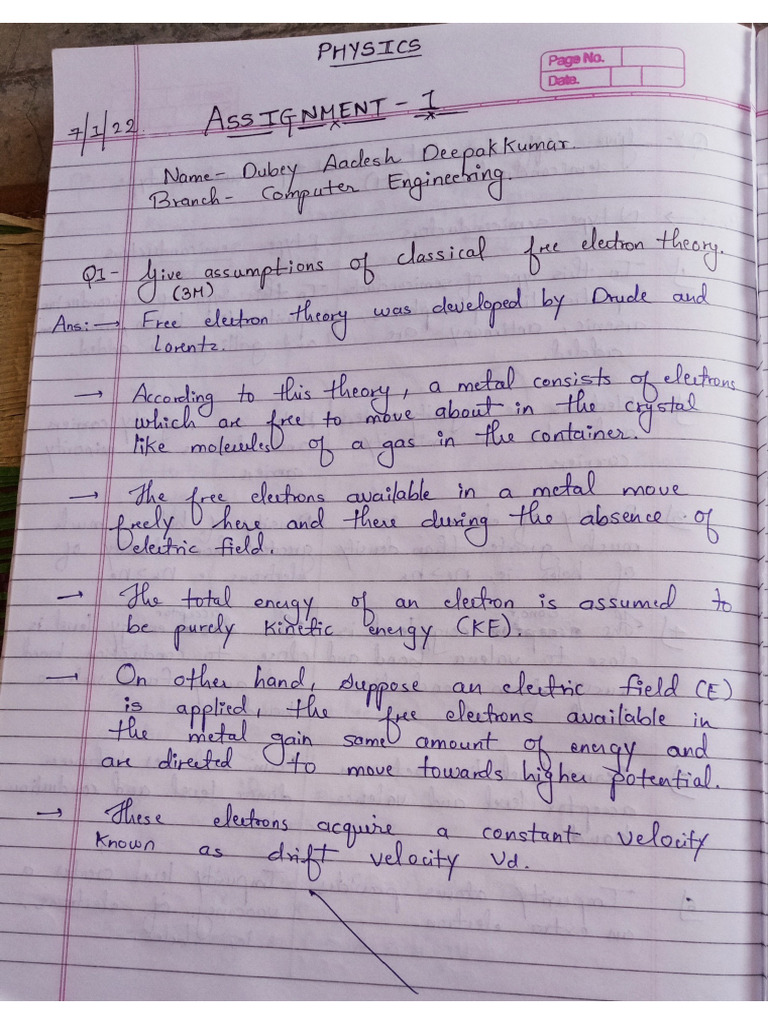 PHYSICS
Page No.
Date.
7/1/22
ASSIGNMENT - 1
Name - Dubey Aadesh Deepakkumar.
Branch - Computer Engineering.
Q1 - Give assumptions of classical free electron theory.
(3M)
Ans: → Free electron theory was developed by Drude and
Lorentz.
→ According to this theory, a metal consists of electrons
which are free to move about in the crystal
like molecules of a gas in the container.
→ The free electrons available in a metal move
freely here and there during the absence of
electric field.
→ The total energy of an electron is assumed to
be purely kinetic energy (KE).
→ On other hand, suppose an electric field (E)
is applied, the free electrons available in
the metal gain some amount of energy and
are directed to move towards higher potential.
→ These electrons acquire a constant velocity
known as drift velocity Vd.